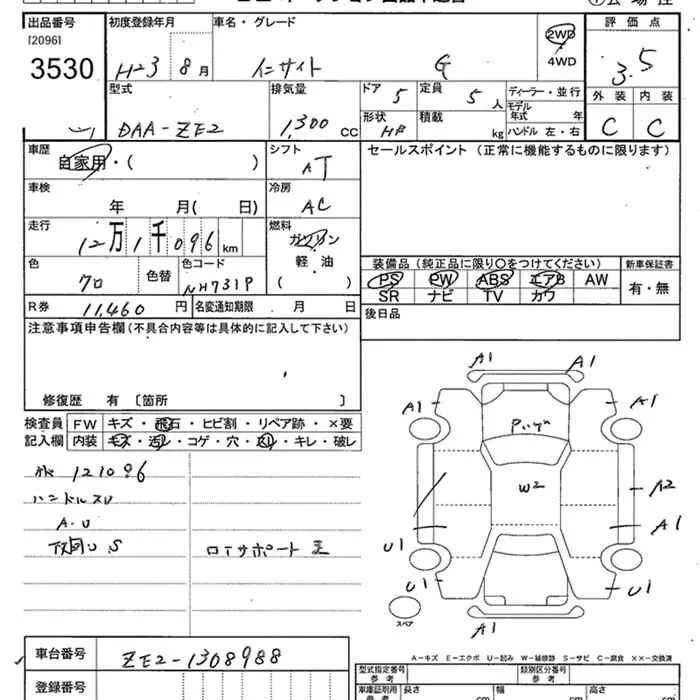 出品番号
[2096]
3530
初度登録年月
H23 8月
車名・グレード
インサイト G
2WD
4WD
評価点
3.5
外装 内装
C C
型式
DAA-ZE2
排気量
1,300 CC
ドア 5
定員 5人
形状 HB
積載 kg
ディーラー・並行
モデル年式 年
ハンドル 左・右
車歴
自家用・( )
シフト
AT
セールスポイント(正常に機能するものに限ります)
車検
年 月( 日)
冷房
AC
走行
12万1千096km
燃料
ガソリン
軽・油
( )
色
クロ
色替
色コード
NH731P
装備品(純正品に限り○をつけてください)
PS PW ABS エアB AW
SR ナビ TV カワ
新車保証書
有・無
R券 11,460円
名変通知期限 月 日
後日品
注意事項申告欄(不具合内容等は具体的に記入して下さい)
修復歴 有〔箇所 〕
検査員記入欄
FW キズ・飛石・ヒビ割・リペア跡・×要
内装 キズ・汚レ・コゲ・穴・スレ・キレ・破レ
121096
ハンドルスレ
A.U
下回り S
A1 A1
A1 A1
W2
A2
A1
U1
U1 U1
A1
スペア
A-キズ E-エクボ U-凹み W-補修跡 S-サビ C-腐食 ××-交換済
車台番号
ZE2-1308988
登録番号
型式指定番号
参考
類別区分番号
参考
車庫証明用
参考
長さ cm
幅 cm
高さ cm